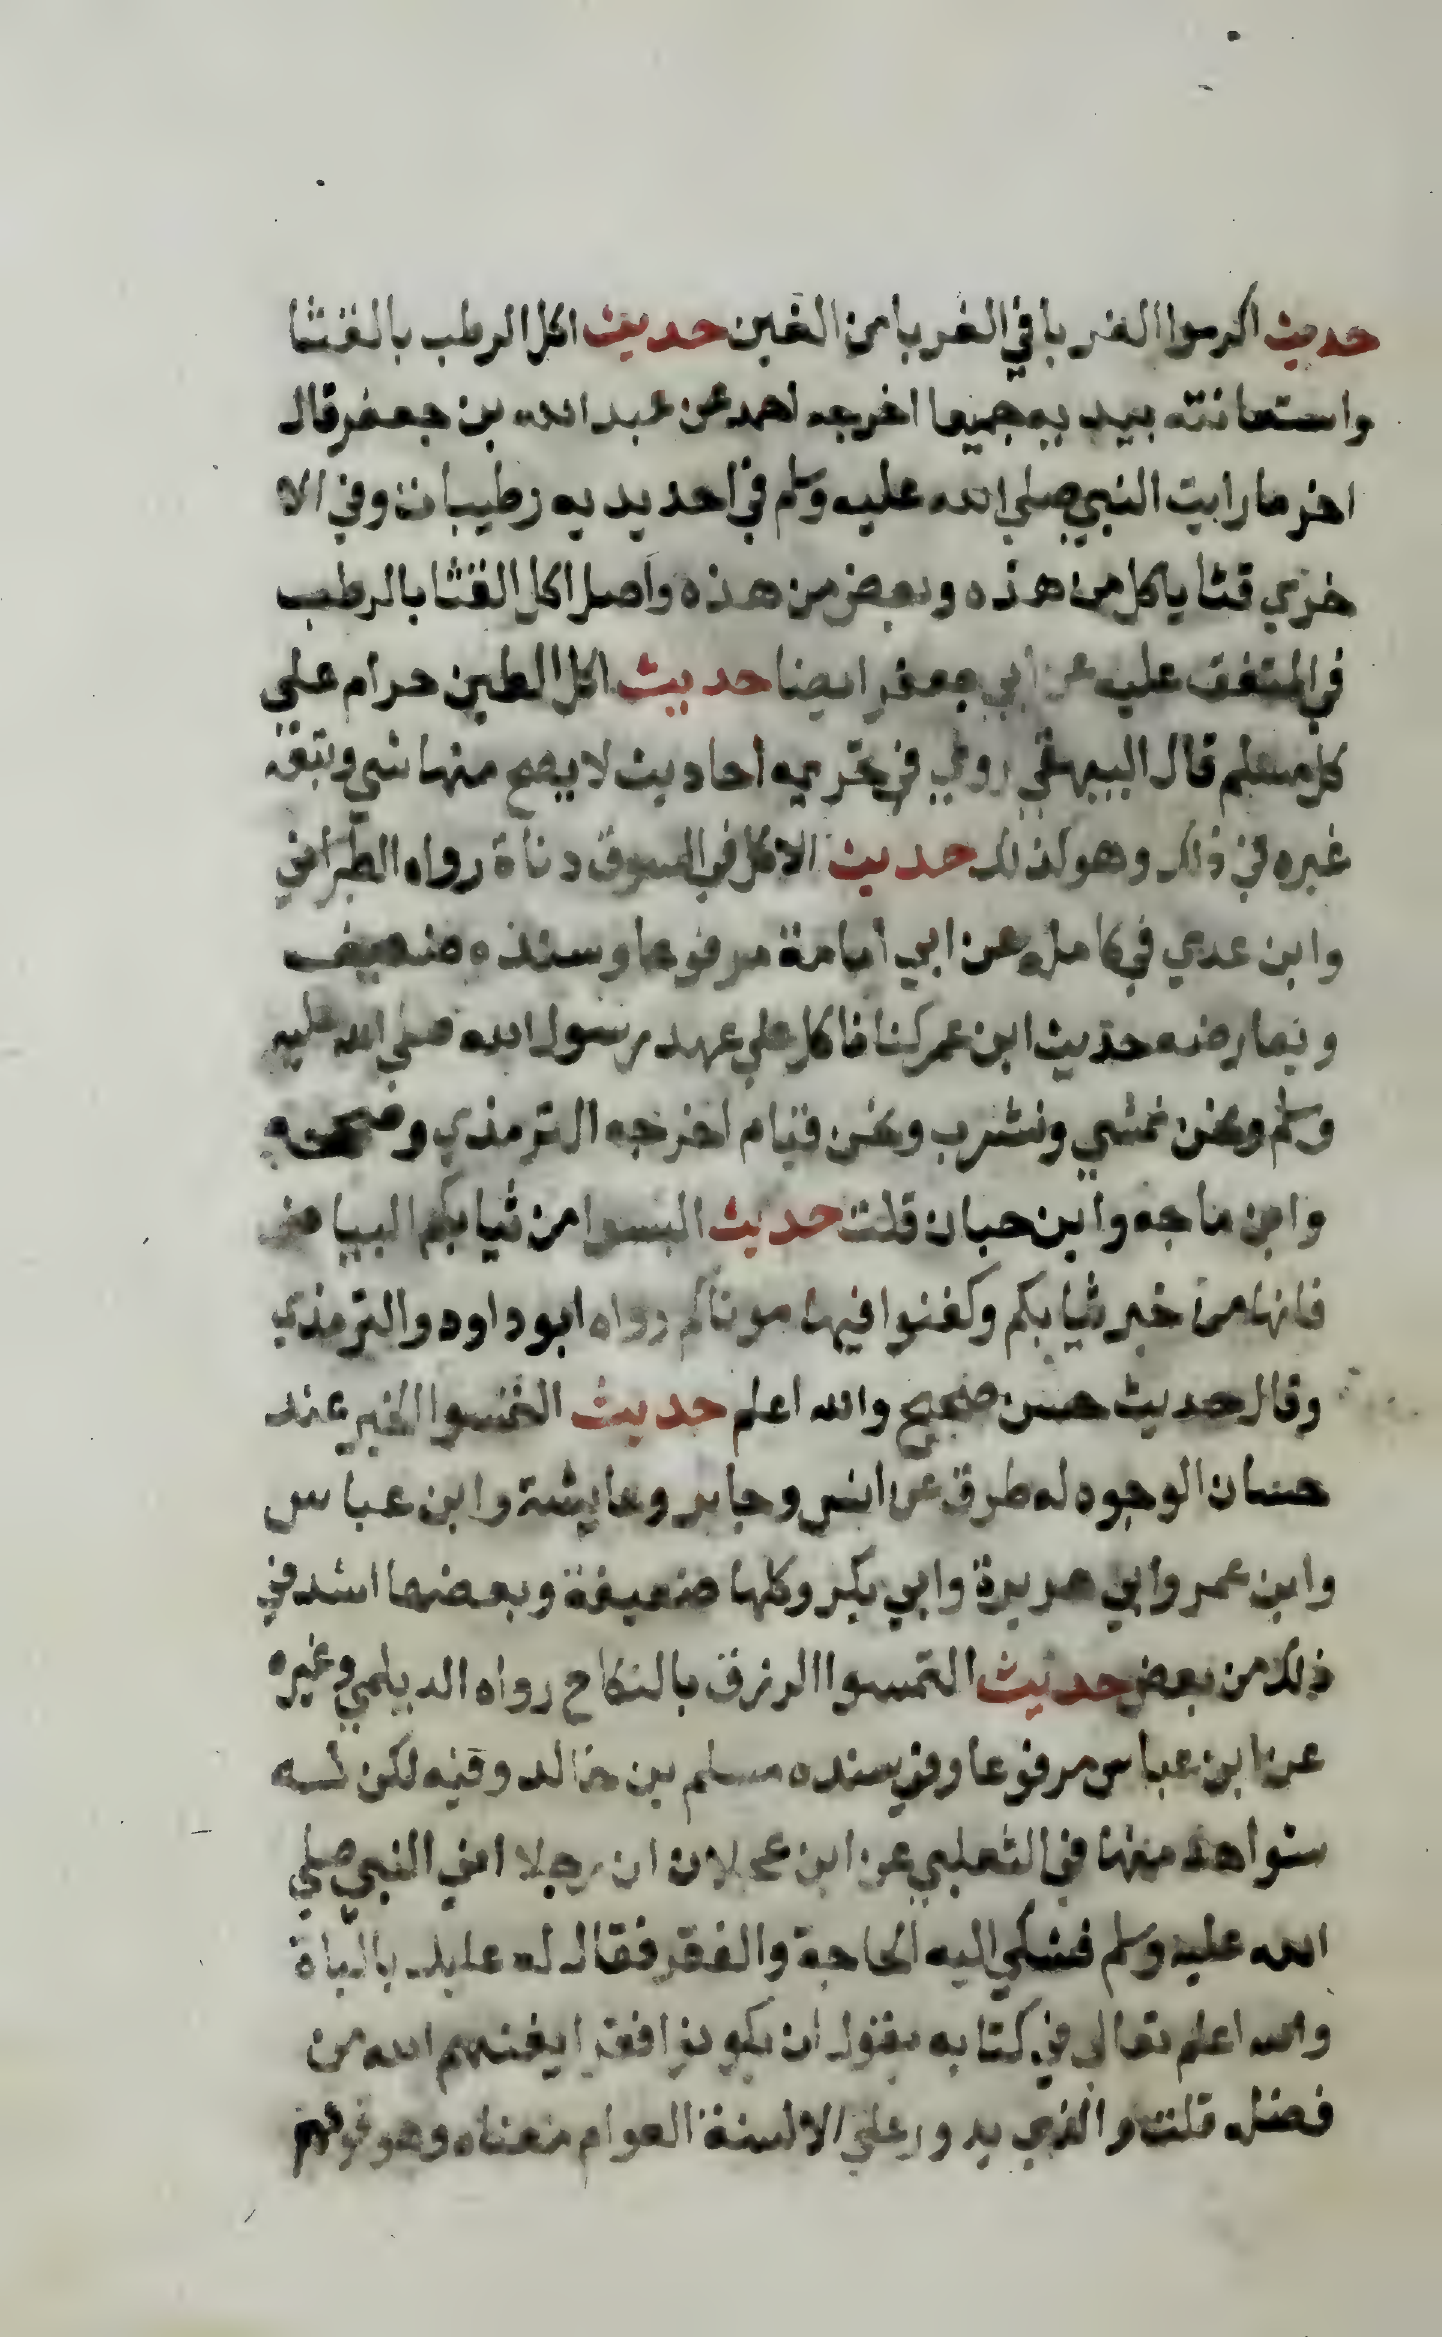 حديث اكرموا الغربا في الغربا من الغبن حديث اكل الرطب بالقثا
واستعانته بيديه جميعا اخرجه احمد عن عبد الله بن جعفر قال
اخر ما رايت النبي صلي الله عليه وسلم في احد يديه رطيبات وفي الا
خري قثا ياكل من هذه وبعض من هذه واصل اكل القثا بالرطب
في المتفق عليه عن ابي جعفر ايضا حديث اكل الطين حرام علي
كل مسلم قال البيهقي روي في تحريمه احاديث لا يصح منها شي وتبعه
غيره في ذلك وهو كذلك حديث الاكل في السوق دناة رواه الطبراني
وابن عدي في كامله عن ابي امامة مرفوعا وسنده ضعيف
ويعارضه حديث ابن عمر كنا ناكل علي عهد رسول الله صلي الله عليه
وسلم ونحن نمشي ونشرب ونحن قيام اخرجه الترمذي وصححه
وابن ماجه وابن حبان قلت حديث البسوا من ثيابكم البياض
فانها من خير ثيابكم وكفنوا فيها موتاكم رواه ابو داود والترمذي
وقال حديث حسن صحيح والله اعلم حديث التمسوا الخير عند
حسان الوجوه له طرق عن انس وجابر وعايشة وابن عباس
وابن عمر وابي هريرة وابي بكر وكلها ضعيفة وبعضها اشد في
ذلك من بعض حديث التمسوا الرزق بالنكاح رواه الديلمي وغيره
عن ابن عباس مرفوعا وفي سنده مسلم بن خالد وفيه لكن له
شواهد منها في الثعلبي عن ابن عجلان ان رجلا اتي النبي صلي
الله عليه وسلم فشكي اليه الحاجة والفقر فقال له عليك بالباة
والله اعلم تعالي في كتابه يقول ان يكونوا فقرا يغنهم الله من
فضله قلت والذي يدور علي الالسنة العوام معناه وهو قولهم